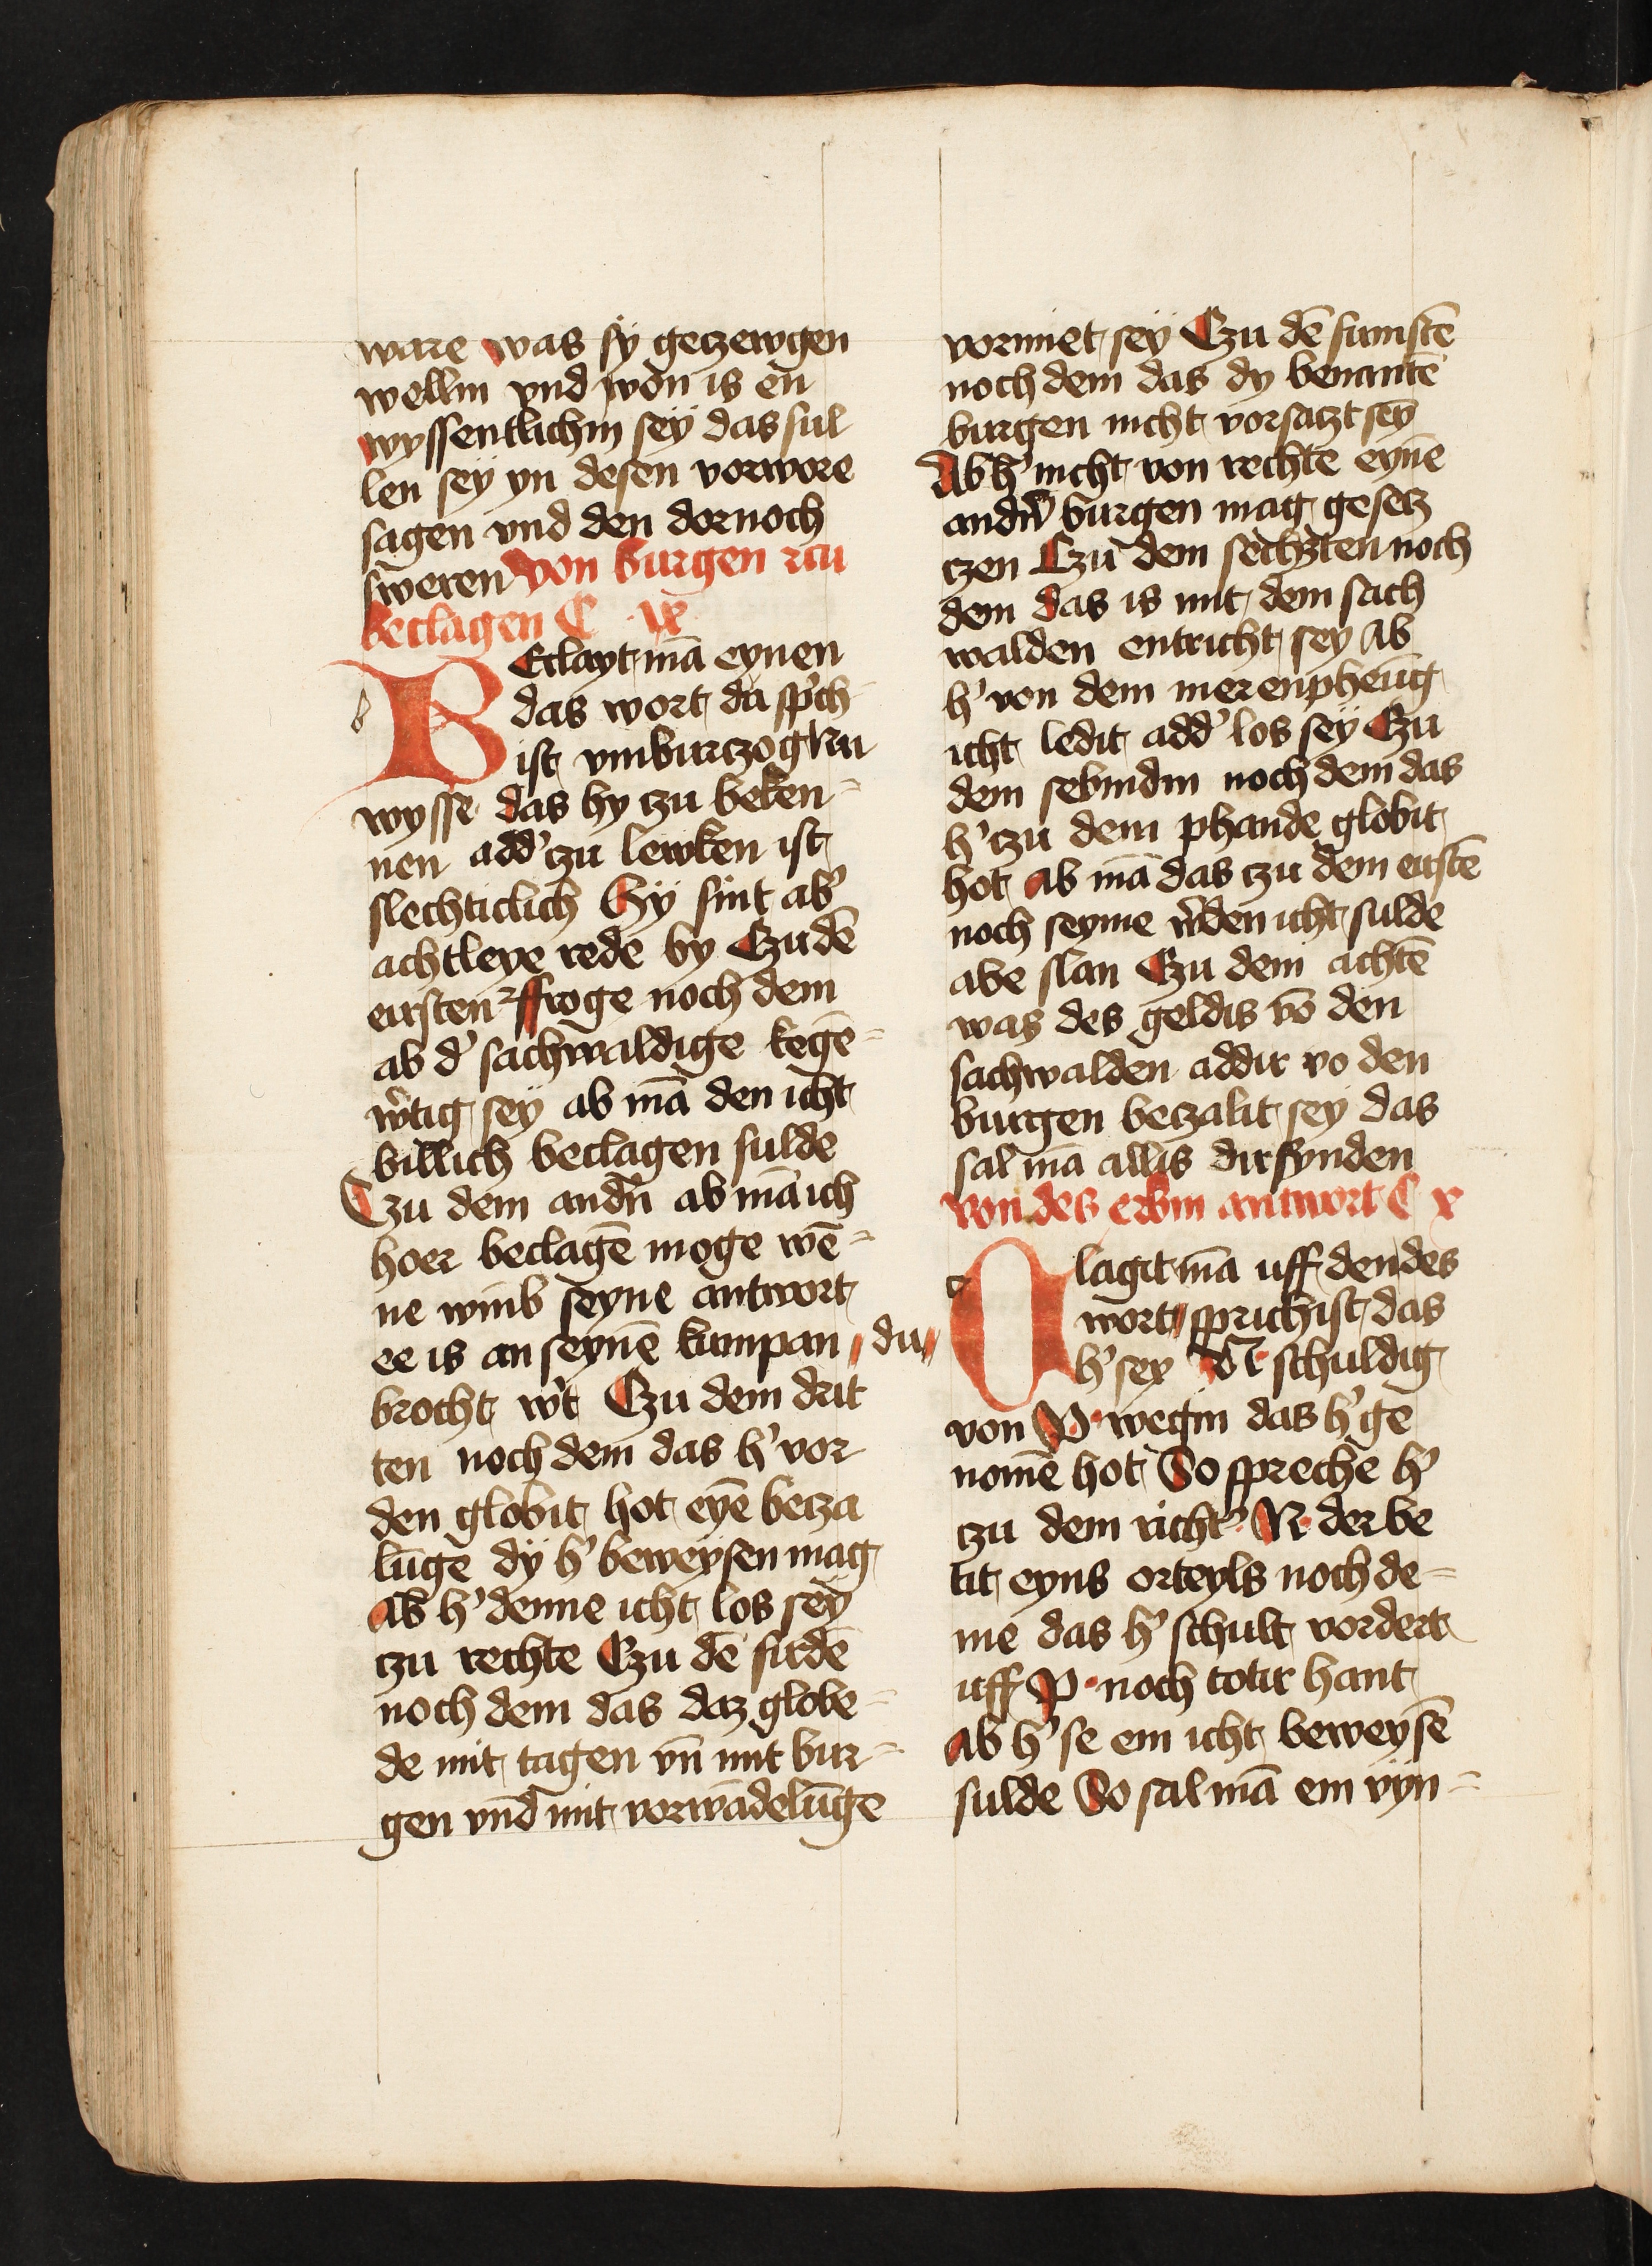 ware was sÿ geczewgen
wellin vnd won is en
wyssentlichin seÿ das sul
len seÿ yn desen vorwore
sagen vnd den dornoch
sweren von burgen czu
beclagen C ix
BEclayt mā eynen
das wort da sp'ch
ist vmb
wysse das hy czu beken⸗
nen add' czu lewken ist
slechticlich Hÿ sint ab'
achtleye rede by Czu dē
eirsten ffroge noch dem
ab d' sachwaldige kegē⸗
w'tig seÿ ab mā den icht
billich beclagen sulde
Czu dem andn̄ ab mā ich
hoer beclagē moge wē⸗
ne wmb seyne antwort
ee is an seynē kumpan du
brocht w't Czu dem drit
ten noch dem das h' vor
den globit hot eyē becza
lūge dÿ h' beweysen mag
Ab h' denne icht los seÿ
czu rechte Czu dē firdē
noch dem das daz globe⸗
de mit tagen vn̄ mit bur⸗
gen vnd mit vorwādelūge
vormet seÿ Czu dē fumftē
noch dem das dy benantē
burgen nicht vorsatzt seȳ
Ab h' nicht von rechte eynē
andn̄ burgen mag gesetz
czen Czu dem sechzten noch
dem das is mit dem sach
walden entricht sey Ab
h' von dem mer enpheūg
icht ledit add' los seÿ Czu
dem sebindin noch dem das
h' czu dem phande globit
hot ab mā das czu dem eirstē
noch seyme w'den icht sulde
abe slan Czu dem achtē
was des geldis vō den
sachwalden addir vo den
burgen beczalit seÿ das
sal mā allis dirfynden
von des erbin antwort C x
Clagit mā uff den des
wort sprichist das
h' sey N schuldig
von P wegin das h' ge
nomē hot So spreche h'
czu dem richt' N der be
tit eyns orteyls noch de⸗
me das h' schult vordert
uff P noch totir hant
Ab h' se em icht beweysē
sulde So sal mā em vyn⸗